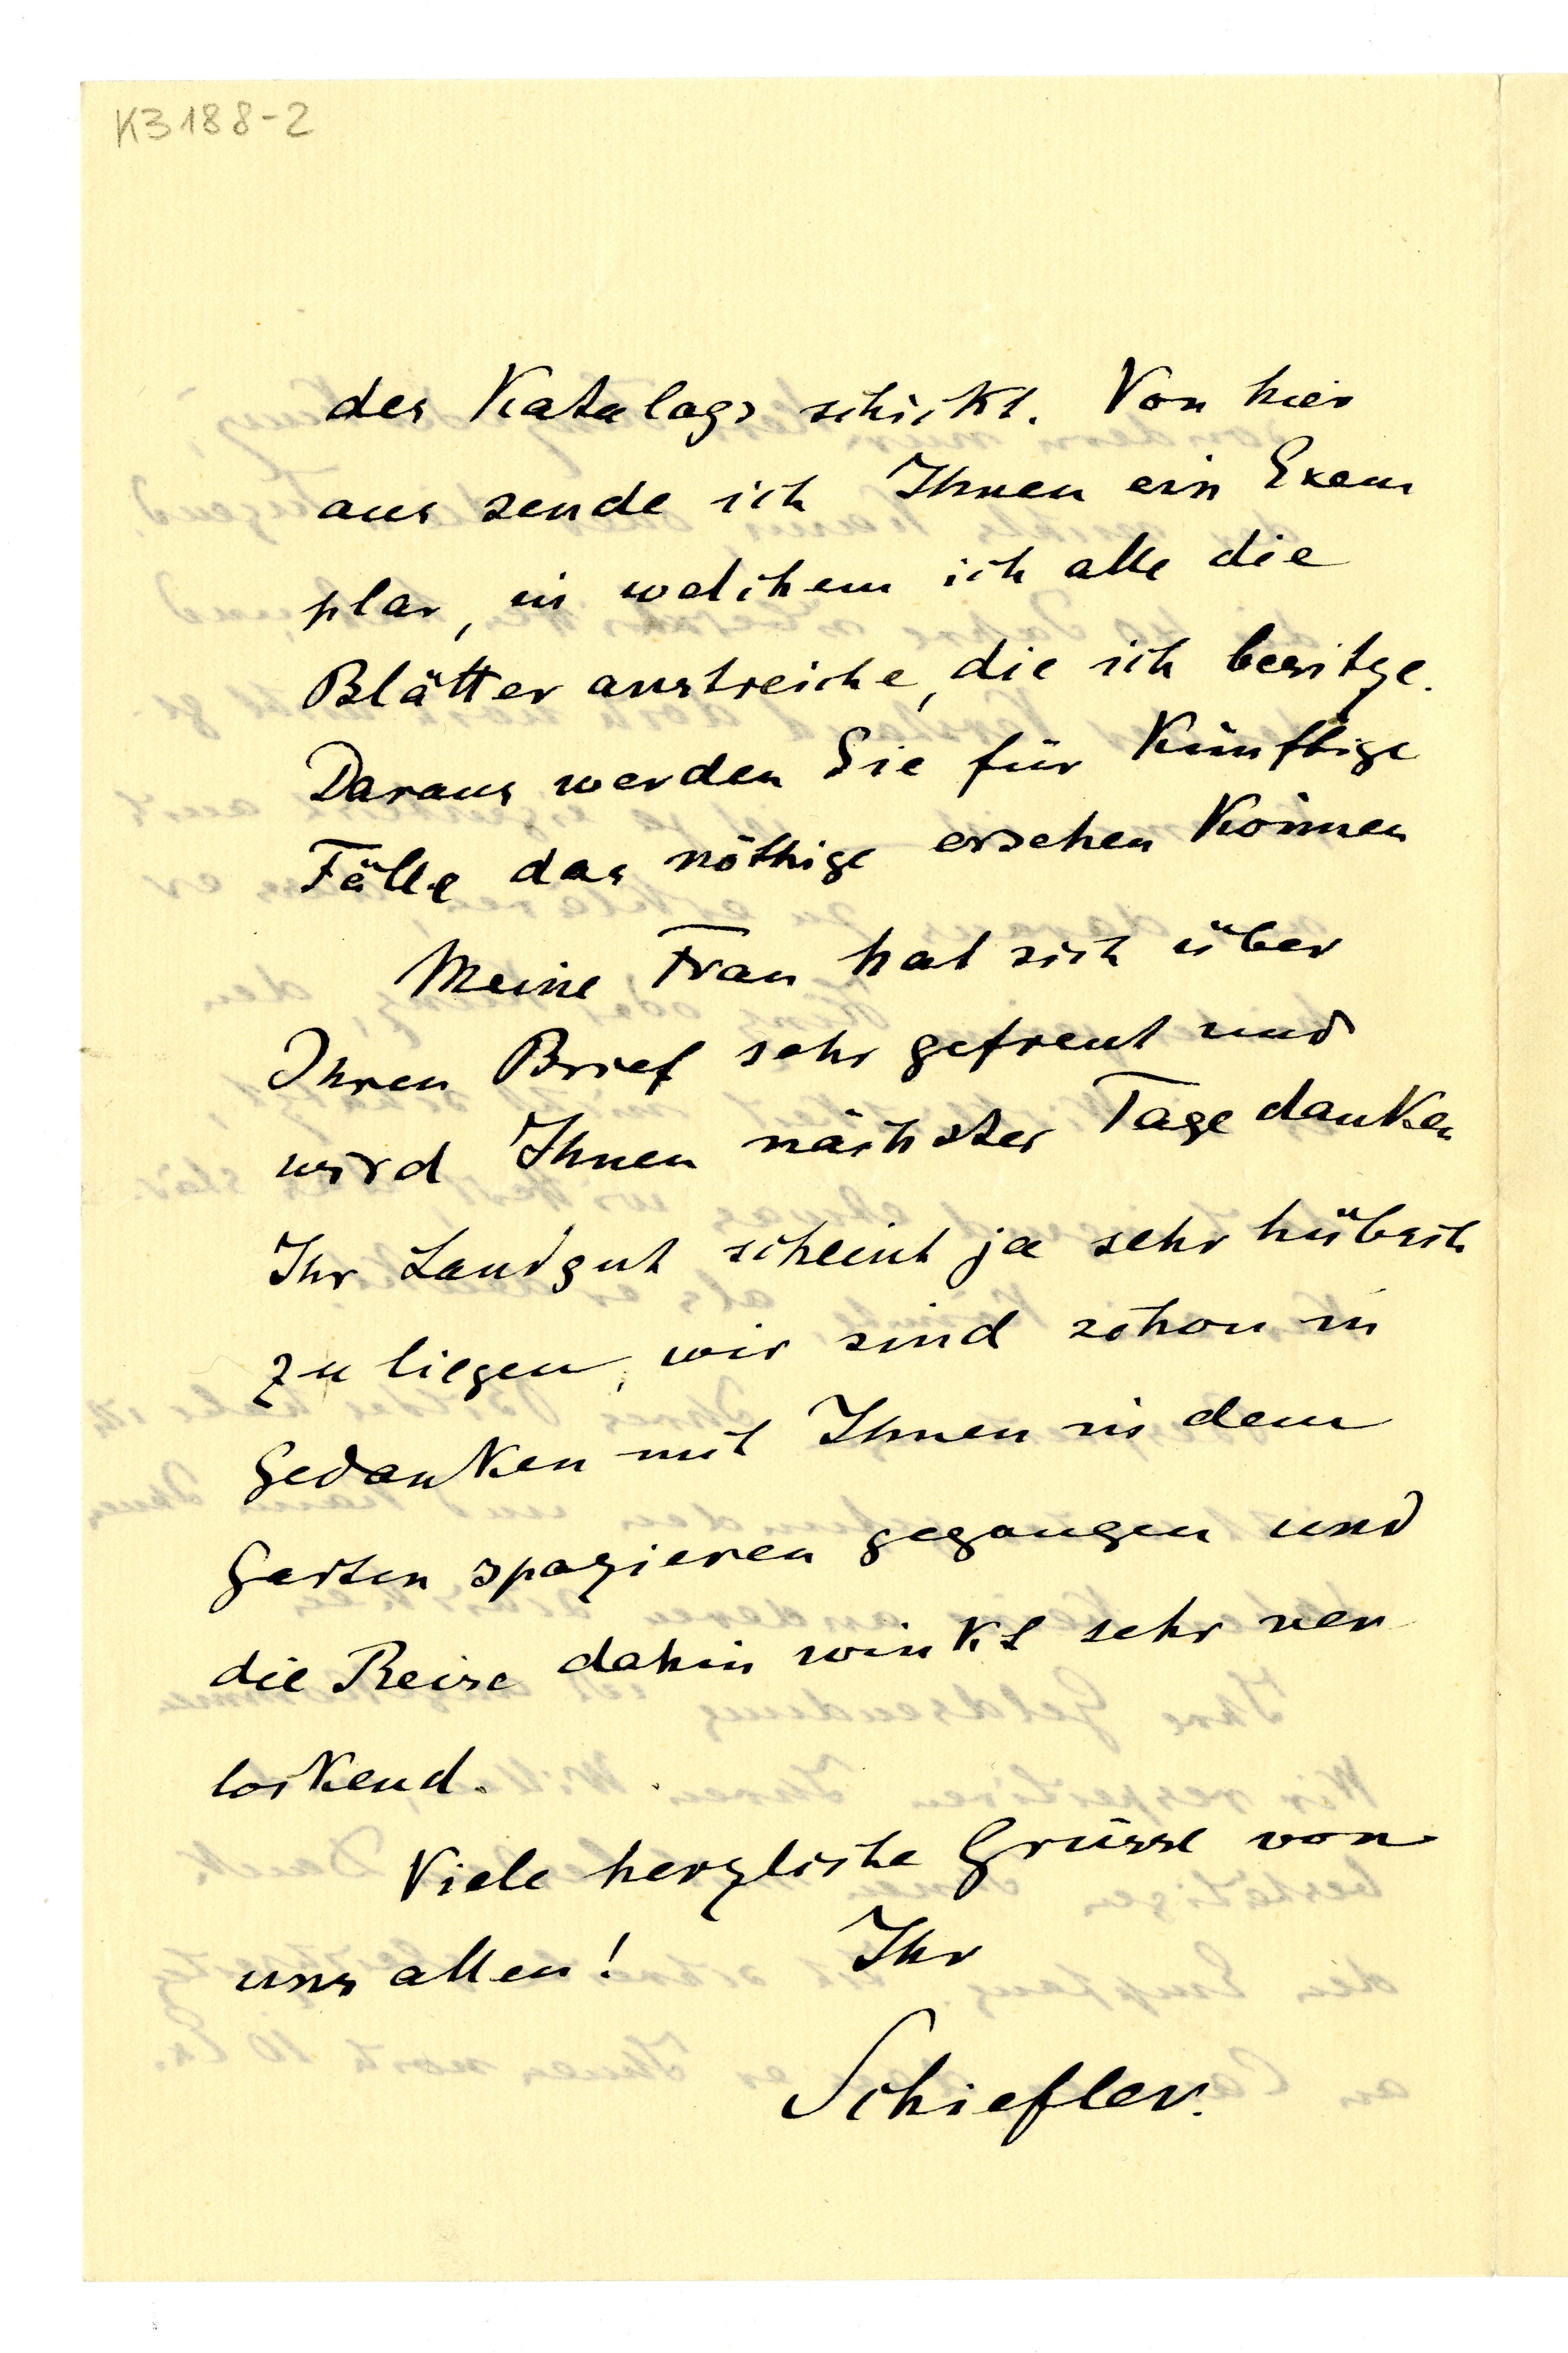 K3188-2
des Katalogs schickt. Von hier
aus sende ich Ihnen ein Exem
plar, in welchem ich alle die
Blätter anstreiche, die ich besitze.
Daraus werden Sie für künftige
Fälle das nöthige ersehen können
Meine Frau hat sich über
Ihren Brief sehr gefreut und
wird Ihnen nächster Tage danken
Ihr Landgut scheint ja sehr hübsch
zu liegen, wir sind schon in
Gedanken mit Ihnen in dem
Garten spazieren gegangen und
die Reise dahin winkt sehr ver
lockend.
Viele herzliche Grüsse von
uns allen! Ihr
Schiefler.